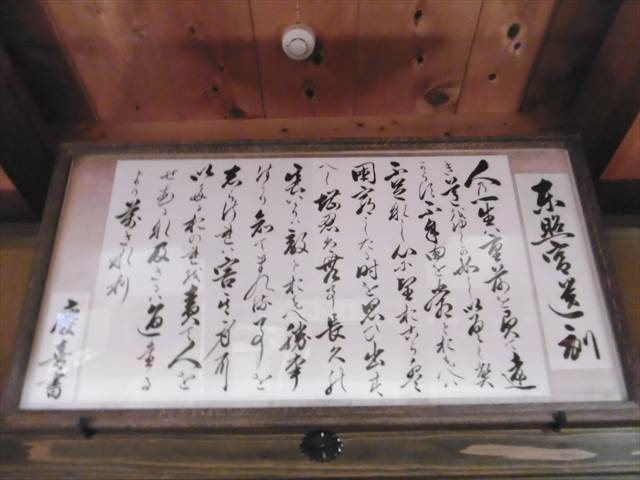 東照宮遺訓
人の一生は重荷を負て遠
き道をゆくか如しいそくへ
からす不自由を常とおもへハ
不足なし心に望おこらハ
困窮したる時を思ひ出す
へし堪忍ハ無事長久の
基いかりハ敵とおもへ勝事
はかり知てまくる事を
しらされハ害其身に
いたるおのれを責て人を
せむるな及さるハ過たる
よりまされり
慶喜書